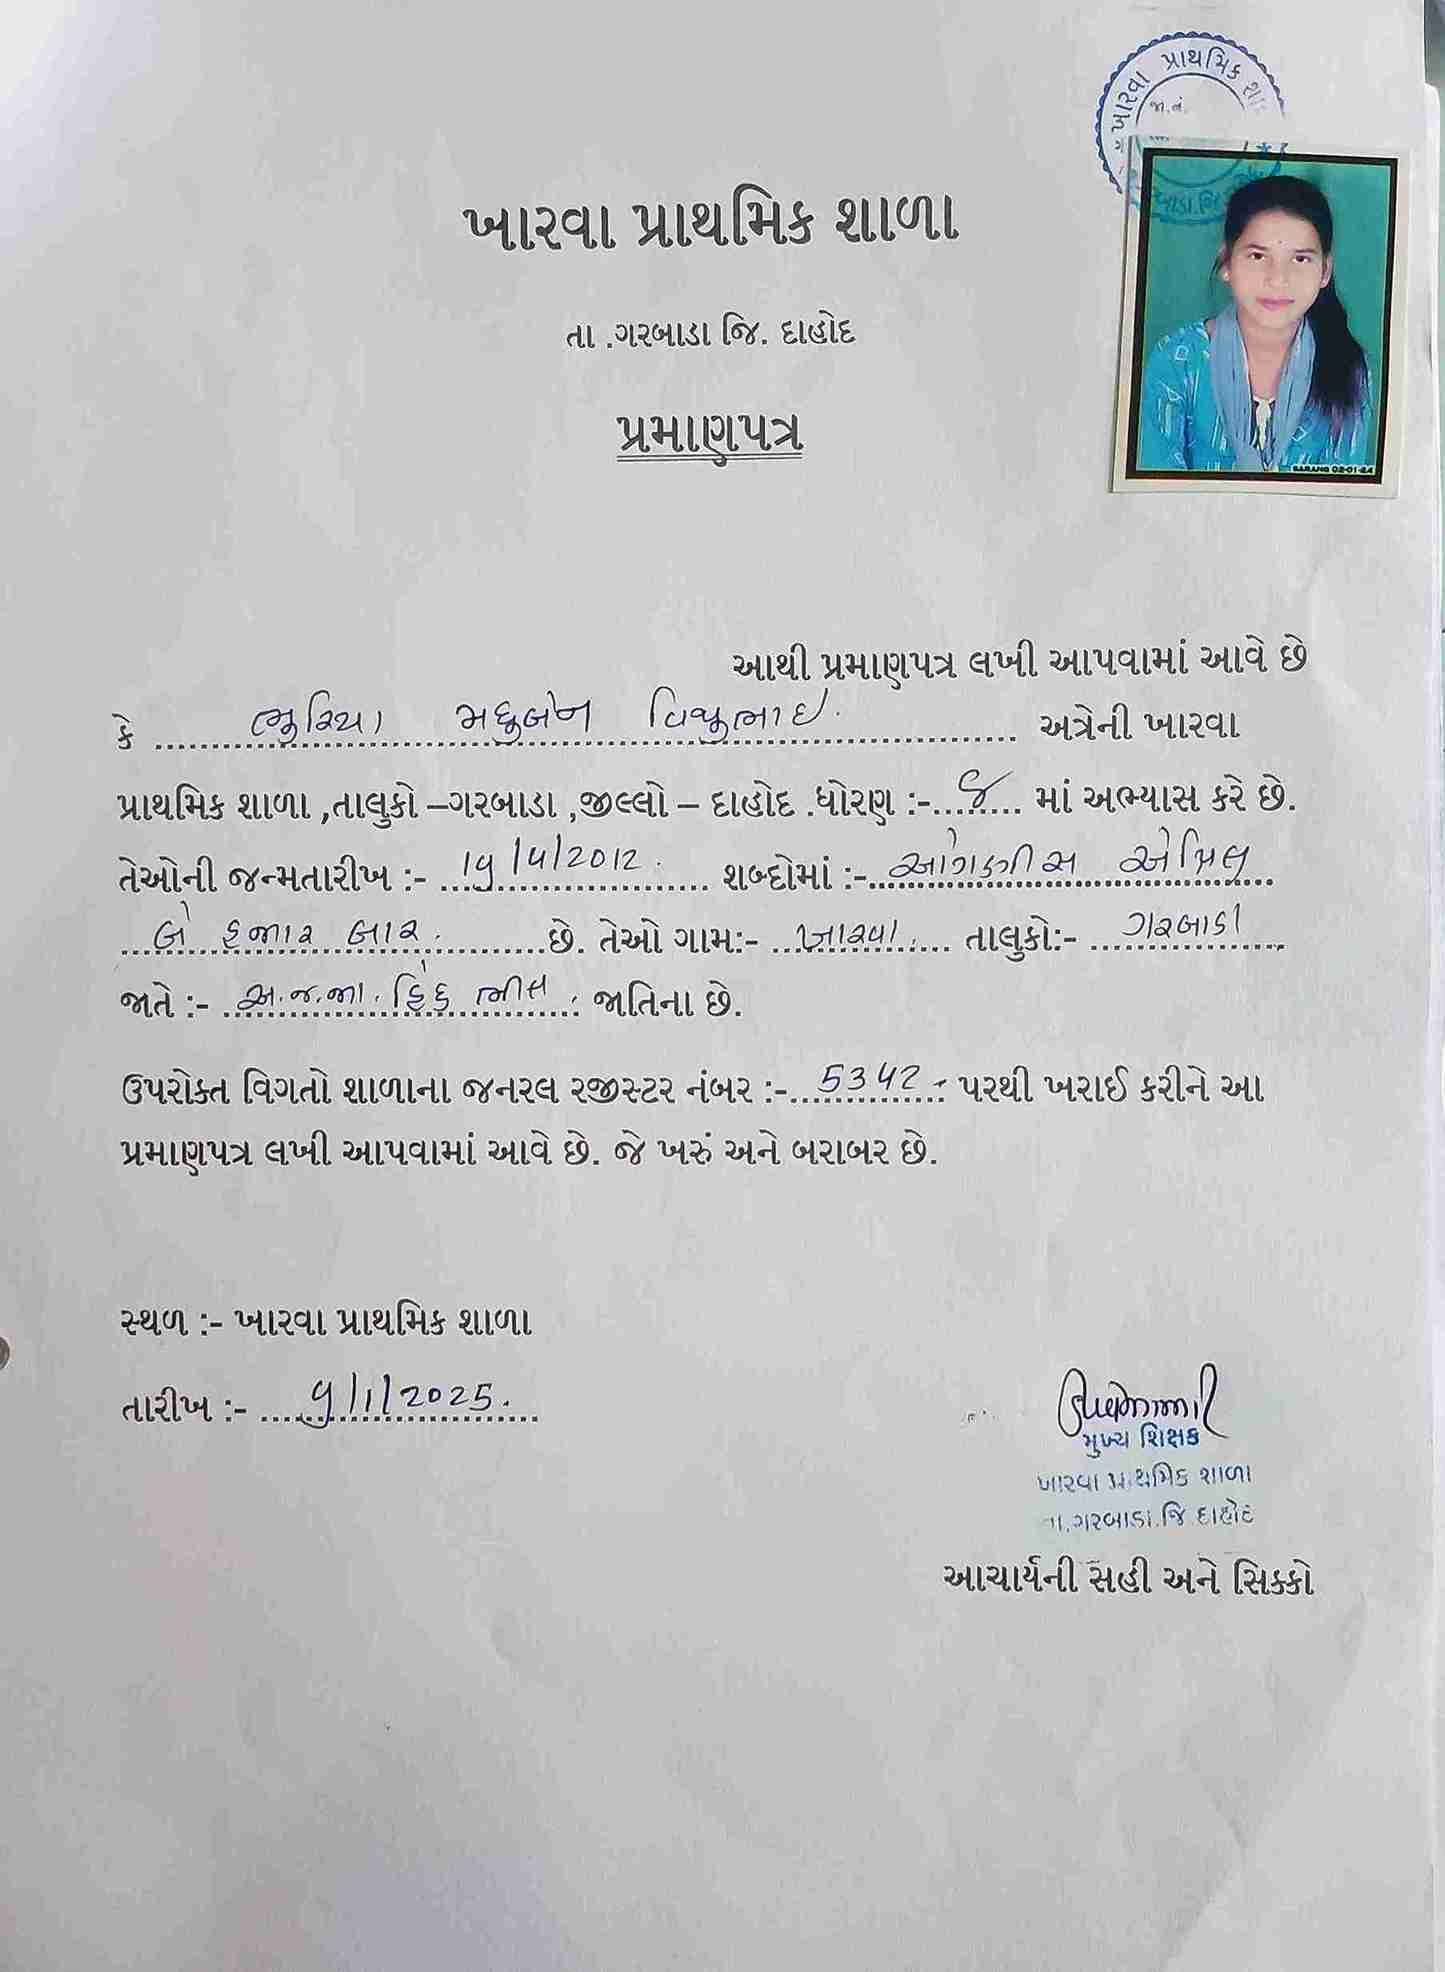 ખારવા પ્રાથમિક શા
જા.નં.
ખારવા પ્રાથમિક શાળા
તા .ગરબાડા જિ. દાહોદ
પ્રમાણપત્ર
SARANG 02-01-24
આથી પ્રમાણપત્ર લખી આપવામાં આવે છે
કે ભુરિયા મધુબેન વિચુભાઇ. અત્રેની ખારવા
પ્રાથમિક શાળા ,તાલુકો –ગરબાડા ,જીલ્લો – દાહોદ .ધોરણ :- માં અભ્યાસ કરે છે.
તેઓની જન્મતારીખ :- /4/2012. શબ્દોમાં :- ઓગણીસ એપ્રિલ
બે હજાર બાર. છે. તેઓ ગામ:- ખારવા. તાલુકો:- ગરબાડા
જાતે :- અ.જ.જા. હિંદુ ભીલ. જાતિના છે.
ઉપરોક્ત વિગતો શાળાના જનરલ રજીસ્ટર નંબર :- 5342 - પરથી ખરાઈ કરીને આ
પ્રમાણપત્ર લખી આપવામાં આવે છે. જે ખરું અને બરાબર છે.
સ્થળ :- ખારવા પ્રાથમિક શાળા
તારીખ :- 9/1/2025.
મુખ્ય શિક્ષક
ખારવા પ્રાથમિક શાળા
તા.ગરબાડા.જિ.દાહોદ
આચાર્યની સહી અને સિક્કો